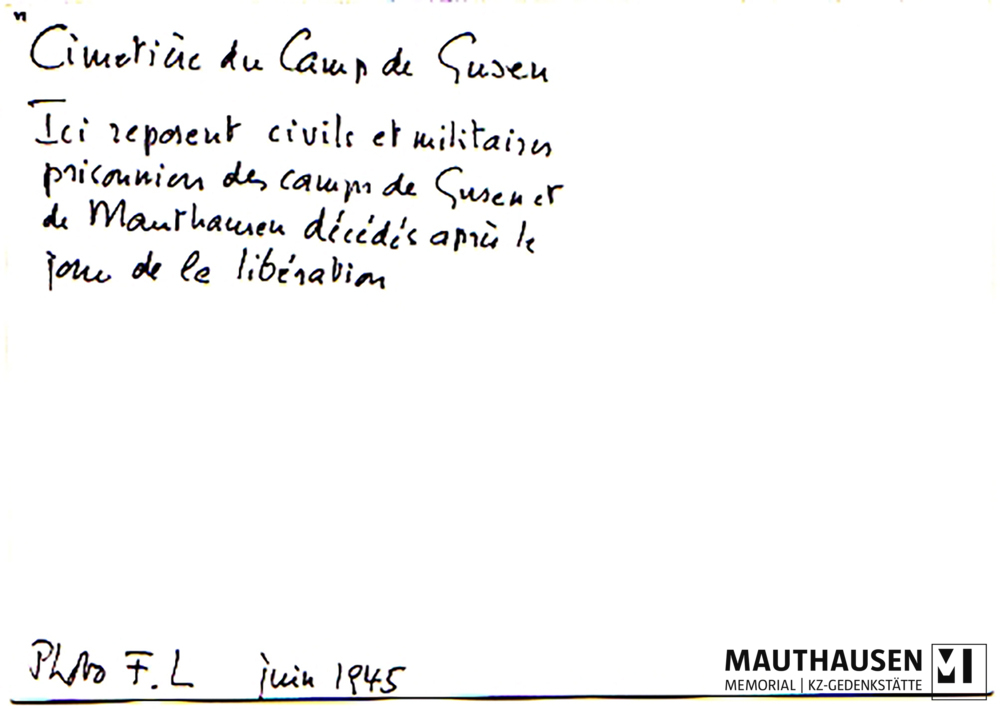 "
Cimetière du Camp de Gusen
Ici reposent civils et militaires
prisonniers des camps de Gusen et
de Mauthausen décédés après le
jour de la libération
Photo F. L juin 1945
MAUTHAUSEN
MEMORIAL | KZ-GEDENKSTÄTTE